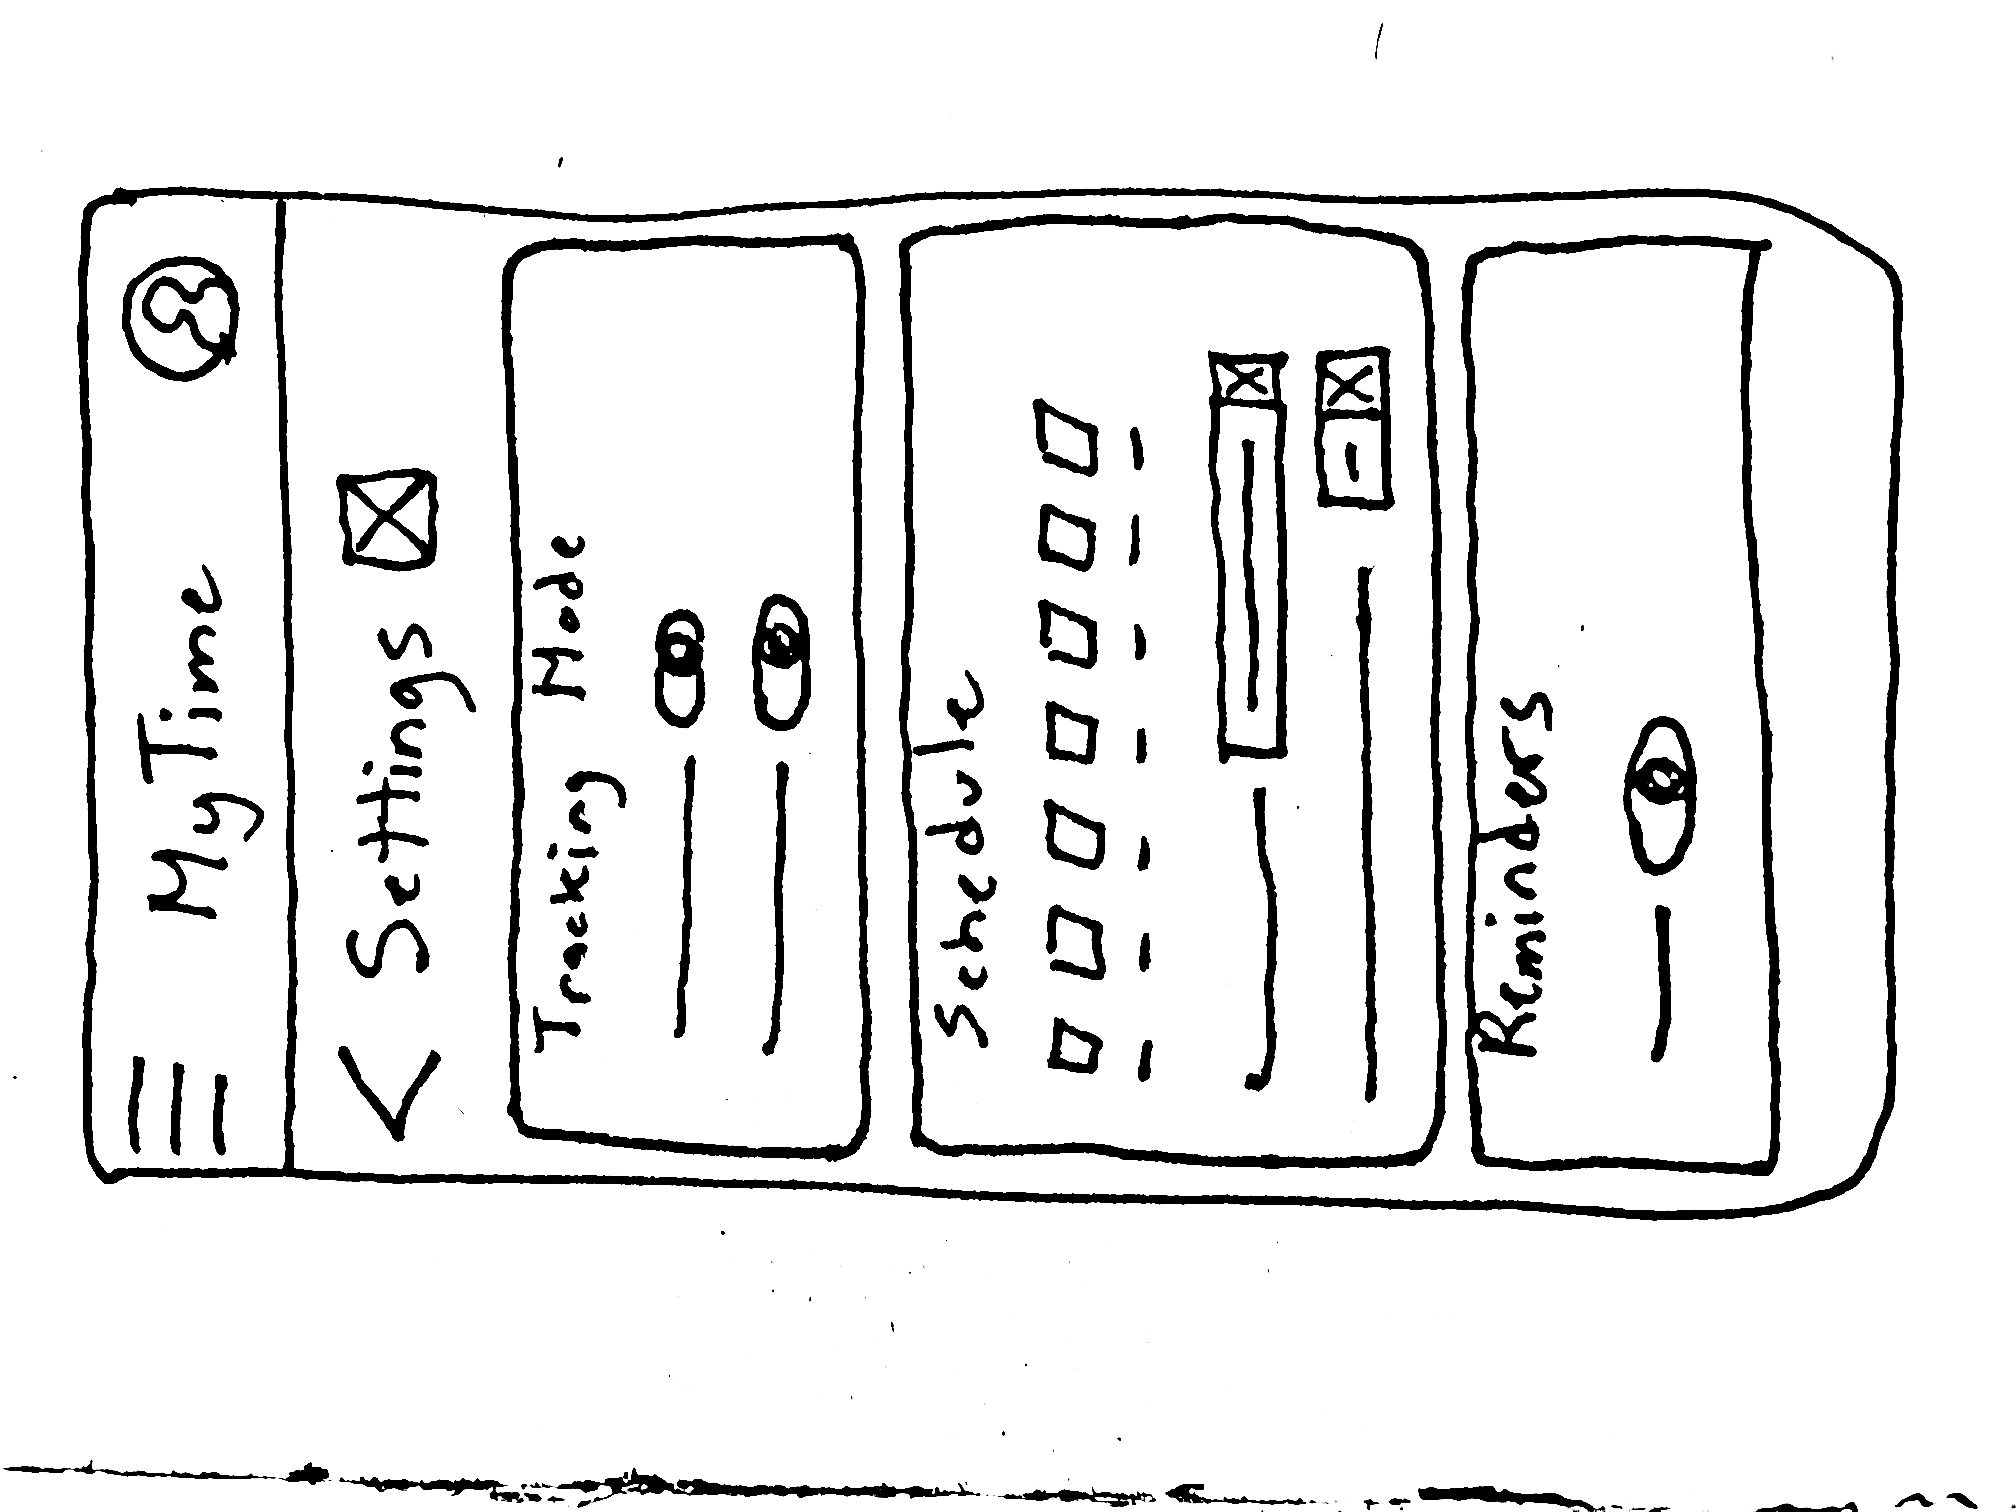 MyTime
Settings
Tracking Mode
Schedule
Reminders